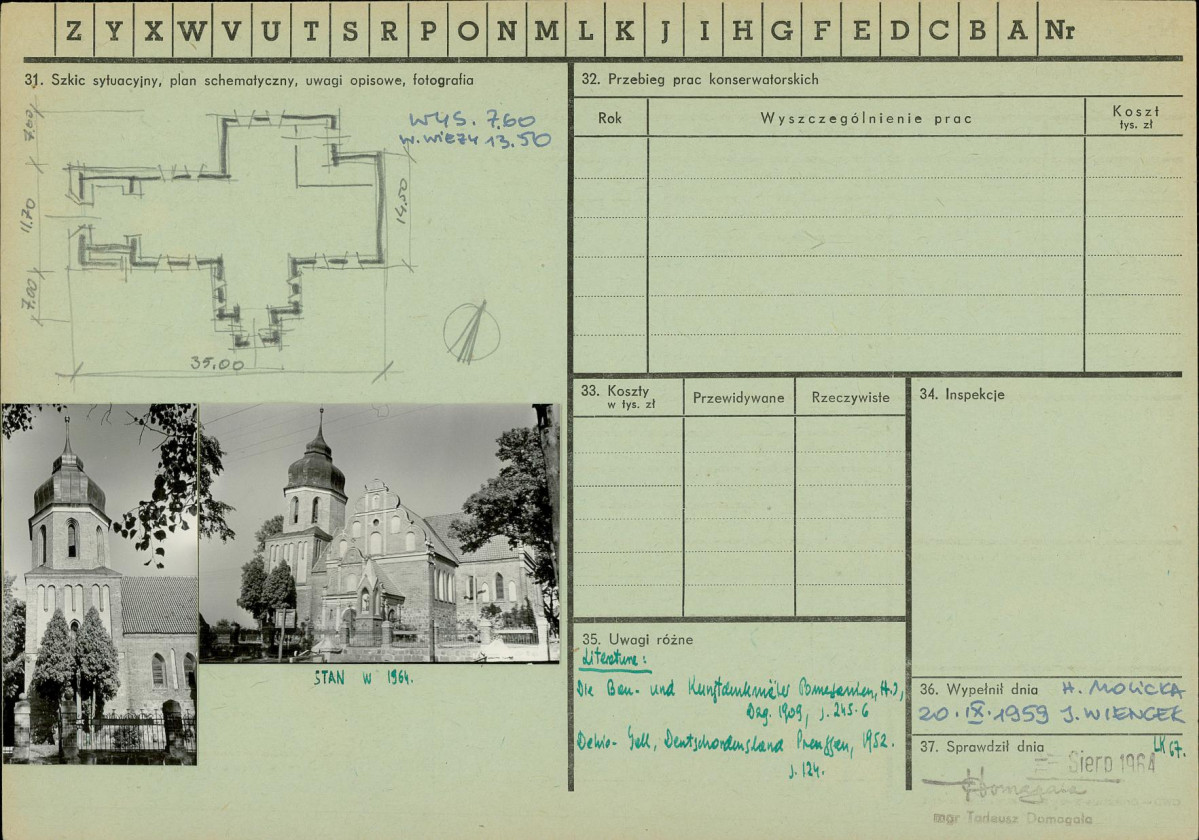 Z Y X W V U T S R P O N M L K J I H G F E D C B A Nr
31. Szkic sytuacyjny, plan schematyczny, uwagi opisowe, fotografia
WYS. 7.60
W. WIEŻY 13.50
7.60
11.70
7.00
14.50
35.00
STAN W 1964.
32. Przebieg prac konserwatorskich
Rok
Wyszczególnienie prac
Koszt
tys. zł
33. Koszty
w tys. zł
Przewidywane
Rzeczywiste
34. Inspekcje
35. Uwagi różne
Literatura:
Die Bau- und Kunstdenkmäler Pomesanien,
Dzg. 1909, s. 245-6
Dehio-Gall, Deutschordensland Preussen, 1952.
s. 124.
36. Wypełnił dnia H. MOLICKA
20.IX.1959 J. WIENCEK
37. Sprawdził dnia
LK 67.
Sierp 1964
Domagała
mgr Tadeusz Domagała